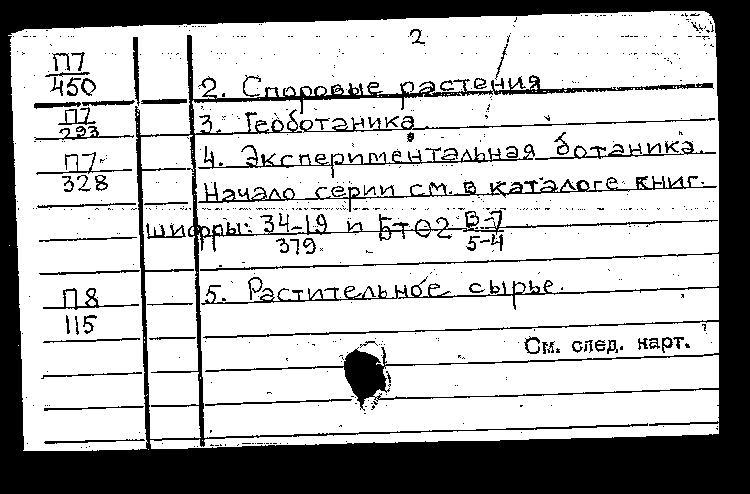 2
П7
450
2. Споровые растения
П7
293
3. Геоботаника
П7
328
4. Экспериментальная ботаника.
Начало серии см. в каталоге книг.
шифры: 34-19/379 и БтО2 В-7/5-4
П8
115
5. Растительное сырье.
См. след. карт.